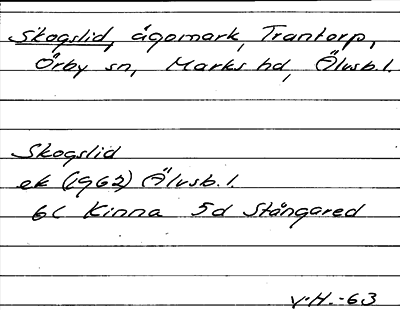 Skogslid, ägomark, Trantorp,
Örby sn, Marks hd, Älvsb. l.
Skogslid
ek (1962) Älvsb. l.
6C Kinna 5d Stångared
V.H. -63